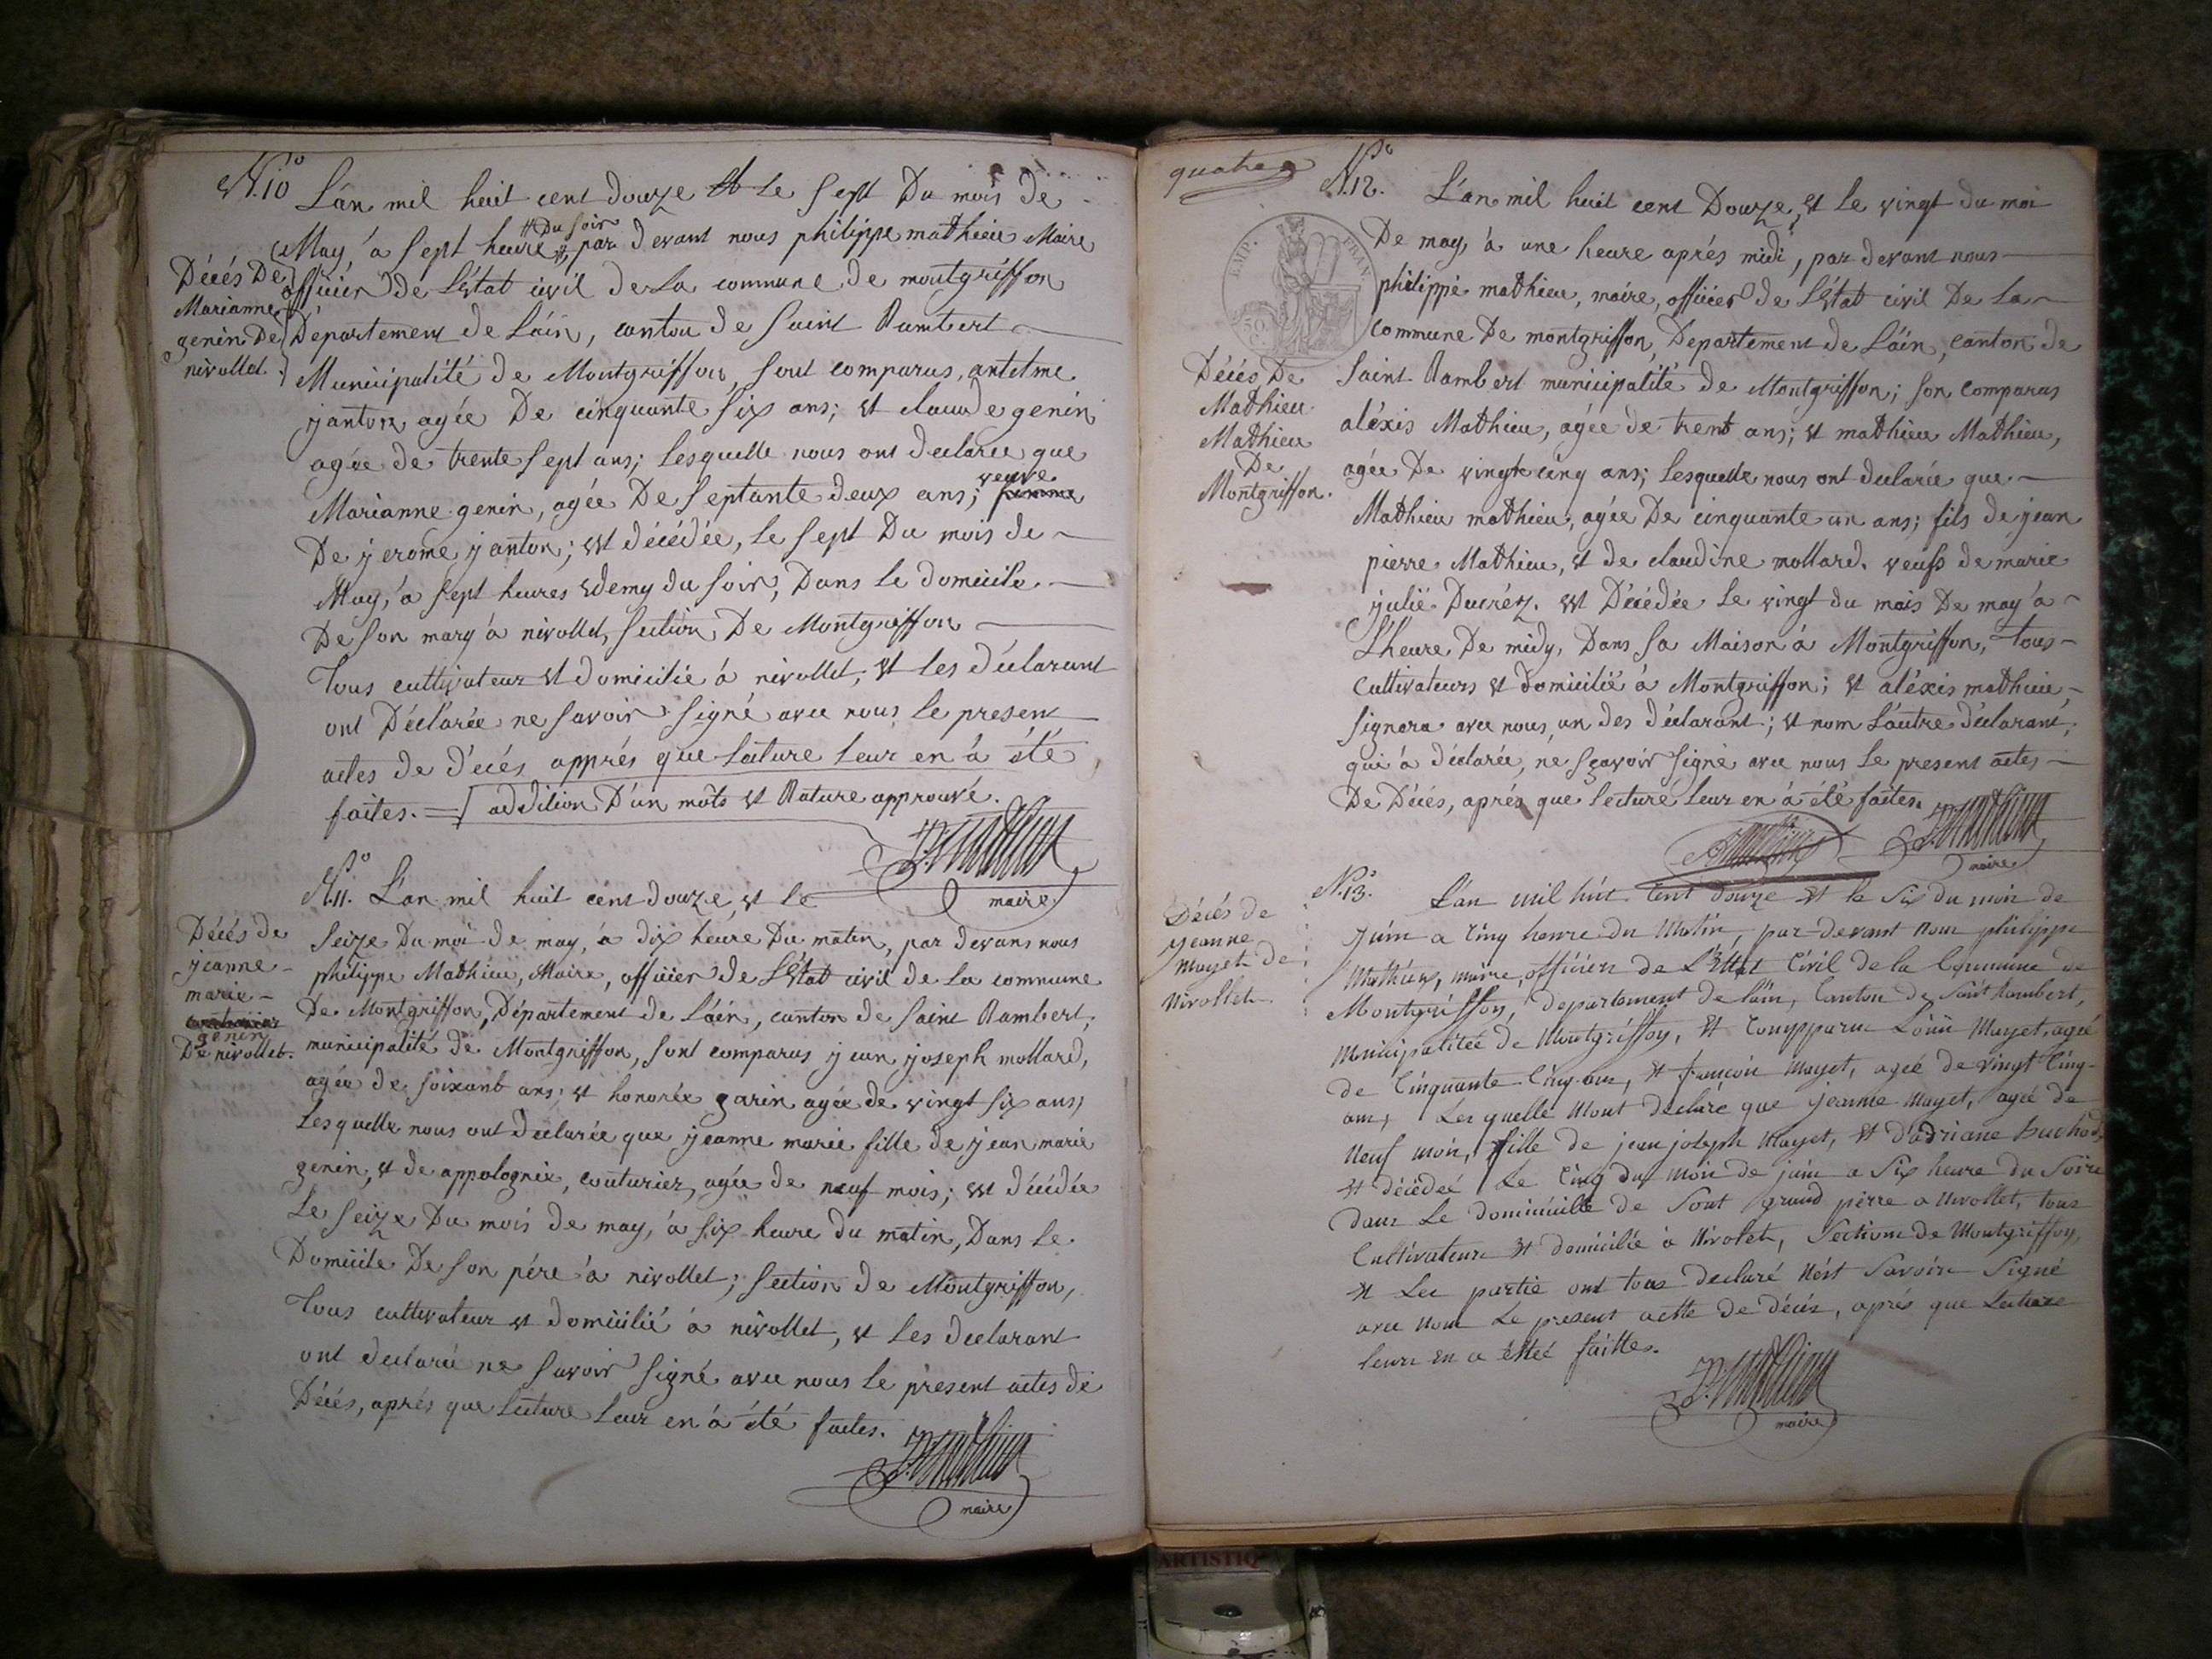 N.° 10 L'an mil huit cent douze et le sept Du mois de
May, à sept heure, # par devant nous philippe mathieu Maire
# Du soir
officier de L'Etat civil de La commune de montgriffon
Département de L'áin, canton de saint Rambert
Municipalité de Montgriffon, sont comparus, antelme
janton agée De cinquante six ans; et claude genin
agée de trente sept ans; Lesquelle nous ont declarée que
Marianne genin, agée De septante deux ans; femme
veuve
De jerome janton; est décédée, Le sept Du mois de
May, à sept heures et demy du soir, Dans le domicile
De son mary à nivollet, section De Montgriffon
Tous cultivateur et domicilié à nivollet; et les déclarant
ont Déclarée ne savoir signé avec nous Le present
actes de décés apprés que Lecture Leur en à été
faites. = addition D'un mots et Rature approuvé.
P. Mathieu
maire
Décés De
Marianne
genin De
nivollet.
N.° 11. L'an mil huit cent douze, et le
seize Du moi de may, à dix heure Du matin, par devans nous
philippe Mathieu, Maire, officier de L'Etat civil de La commune
De Montgriffon, Département de L'áin, canton de saint Rambert;
municipalité de Montgriffon, sont comparus jean joseph mollard,
agée de soixant ans; et honorée garin agée de vingt six ans;
Lesquelle nous ont declarée que jeanne marie fille de jean marie
genin, et de appolognie, couturier, agée de neuf mois; est décédée
Le seize Du mois de may, à six heure du matin, Dans Le
Domicile De son pére à nivollet; section de Montgriffon,
Tous cultivateur et domicilié à nivollet, et Les declarant
ont declarée ne savoir signé avec nous le présent actes de
Décés, aprés que Lecture Leur en à été faites.
P. Mathieu
maire
Décés de
jeanne
marie
genin
De nivollet.
quatre
N.° 12. L'an mil huit cent Douze, et Le vingt du moi
De may, à une heure aprés midi, par devant nous
philippe mathieu, maire, officier de L'Etat civil De La
commune De montgriffon, Departement de L'áin, canton de
saint Rambert municipalité de Montgriffon; son comparus
aléxis Mathieu, agée de trent ans; et mathieu Mathieu,
agée De vingt cinq ans; Lesquelle nous ont declarée que
Mathieu mathieu, agée De cinquante un ans; fils de jean
pierre Mathieu, et de claudine mollard. veufs de marie
julié Ducréz. est Décédée Le vingt du mois De may à
L'heure De midy, Dans sa Maison à Montgriffon, Tous
cultivateurs et domicilié à Montgriffon; et aléxis mathieu
signera avec nous, un des déclarant; et nom L'autre déclarant,
qui à déclarée, ne sçavoir signé avec nous Le present actes
De Décés, aprés que Lecture Leur en à été faites.
P. Mathieu
maire
EMP. FRAN.
50 C.
Décés De
Mathieu
Mathieu
De
Montgriffon.
N.° 13. L'an mil huit Cent douze et le six du mois de
juin a Cinq heure du Matin, par devant nous philippe
Mathieu, maire, officier de L'Ettat Civil de la Commune de
Montgriffon, departement de l'ain, Canton de Saint Rambert,
Municipalitée de Montgriffon, et Compparu Louis Mayet, agée
de Cinquante Cinq ans, et françois Mayet, agée de vingt Cinq
ans, Lesquelle Nout declaré que jeanne Mayet, agée de
neuf mois, fille de jean joseph Mayet, et d'adriane Buchod,
et décédeé Le Cinq du Mois de juin a Six heure du Soire
dans Le dominicille de Sont grand perre a Nivollet, tous
Cultivateur et domicilié à Nivolet, Sections de Montgriffon,
et Les partie ont tous declaré Nést Savoir Signé
avec nous Le present actte de décés, aprés que Lecture
leurs en a étteé faittes.
P. Mathieu
maire
Décés de
jeanne
mayet de
nivollet
ARTISTIQ